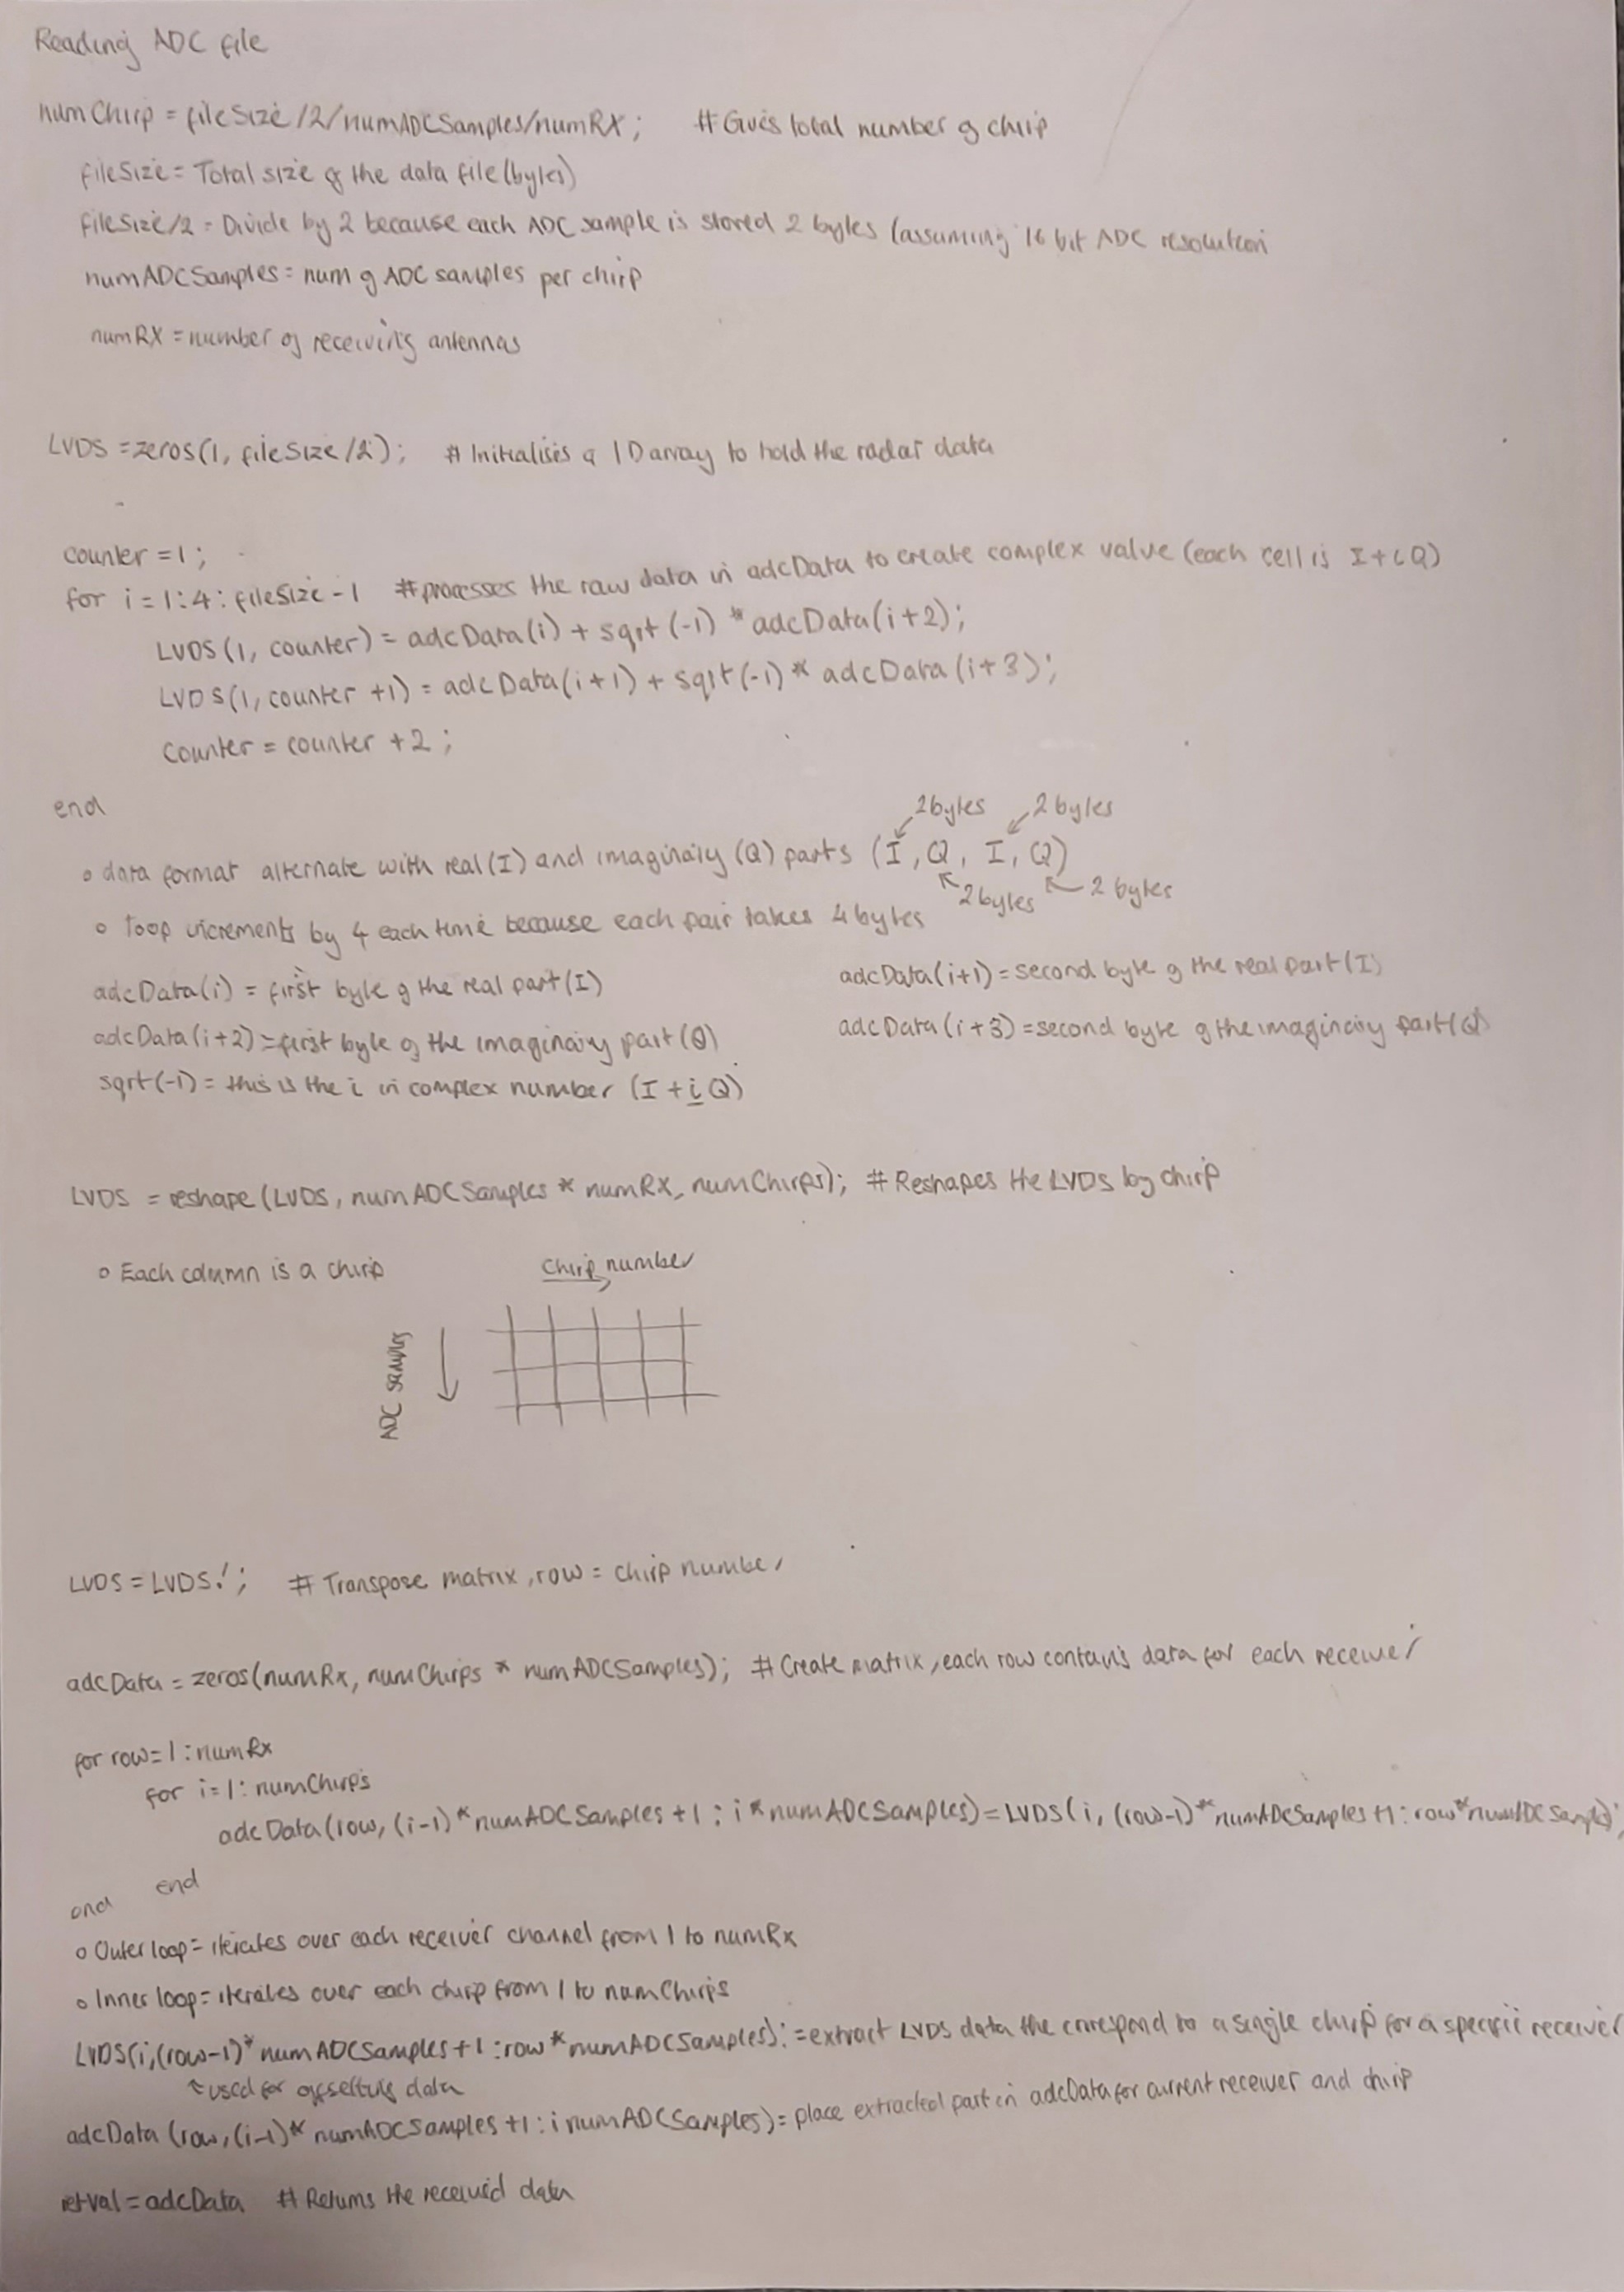 Reading ADC file
numChirp = fileSize/2/numADCSamples/numRX; # Gives total number of chirp
fileSize = Total size of the data file (bytes)
fileSize/2 = Divide by 2 because each ADC sample is stored 2 bytes (assuming 16 bit ADC resolution
numADCSamples = num of ADC samples per chirp
numRX = number of receiving antennas
LVDS = zeros(1, fileSize/2); # Initialises a 1D array to hold the radar data
counter = 1;
for i = 1:4:fileSize-1 # processes the raw data in adcData to create complex value (each cell is I+iQ)
LVDS(1, counter) = adcData(i) + sqrt(-1) * adcData(i+2);
LVDS(1, counter +1) = adcData(i+1) + sqrt(-1) * adcData(i+3);
counter = counter +2;
end
2bytes 2 bytes
o data format alternate with real (I) and imaginary (Q) parts (I, Q, I, Q)
2bytes 2 bytes
o loop increments by 4 each time because each pair takes 4 bytes
adcData(i) = first byte of the real part (I) adcData(i+1) = second byte of the real part (I)
adcData(i+2) = first byte of the imaginary part (Q) adcData(i+3) = second byte of the imaginary part (Q)
sqrt(-1) = this is the i in complex number (I + iQ)
LVDS = reshape(LVDS, numADCSamples * numRX, numChirps); # Reshapes the LVDS by chirp
o Each column is a chirp
chirp number
ADC samples
LVDS = LVDS.'; # Transpose matrix, row = chirp number
adcData = zeros(numRx, numChirps * numADCSamples); # Create matrix, each row contains data for each receiver
for row=1:numRx
for i=1:numChirps
adcData(row, (i-1)*numADCSamples+1 : i*numADCSamples) = LVDS(i, (row-1)*numADCSamples+1 : row*numADCSamples);
end
end
o Outer loop = iterates over each receiver channel from 1 to numRx
o Inner loop = iterates over each chirp from 1 to numChirps
LVDS(i,(row-1)* numADCSamples+1 : row*numADCSamples): = extract LVDS data the correspond to a single chirp for a specific receiver
used for offsetting data
adcData (row, (i-1)* numADCSamples +1 : i numADCSamples) = place extracted part in adcData for current receiver and chirp
retVal = adcData # Returns the received data